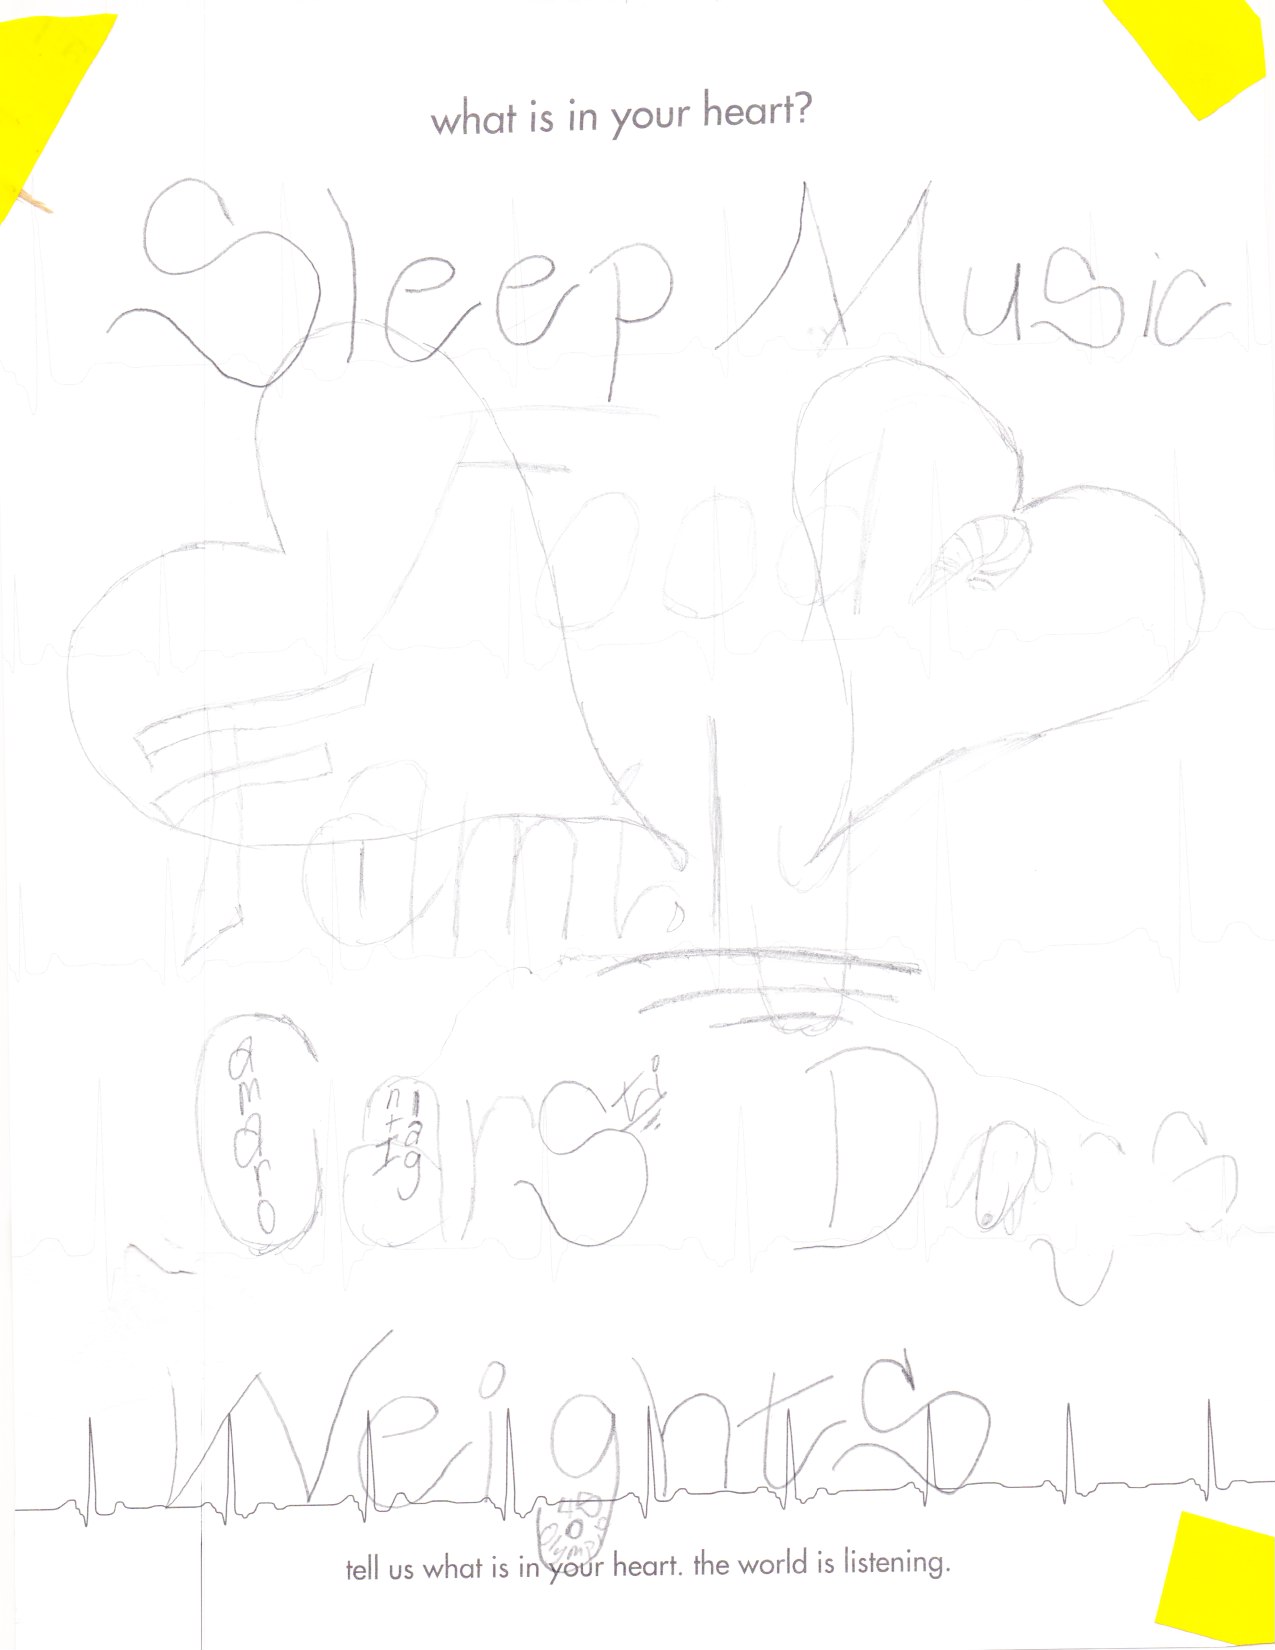 what is in your heart?
Sleep Music
Food
Family
Cars Dogs
amaro
Weights
45
Olympic
tell us what is in your heart. the world is listening.